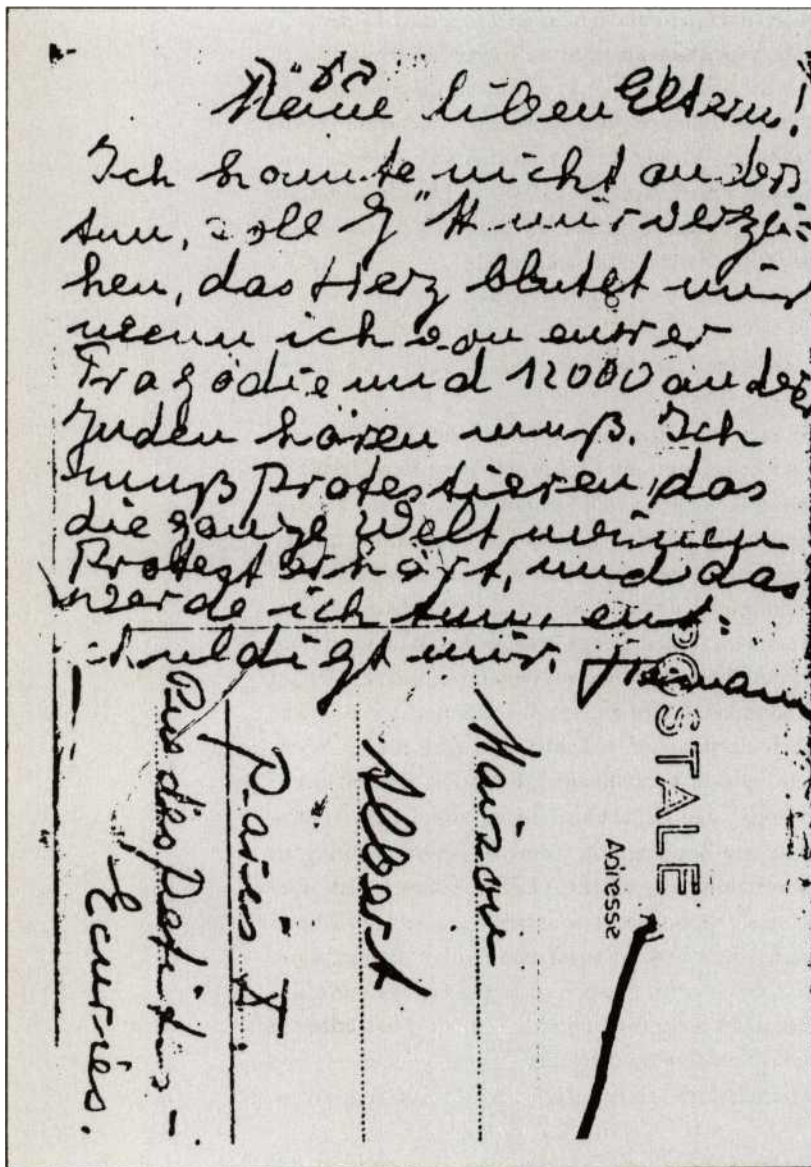 Meine liben Eltern!
Ich konnte nicht anders
tun, soll G"tt mir verzei=
hen, das Herz blutet mir
wenn ich von eurer
Tragödie und 12000 anderer
Juden hören muß. Ich
muß protestieren, das
die ganze Welt meinen
Protest erhört, und das
werde ich tun, ent=
schuldigt mir. Hermann
POSTALE
Adresse
Maison
Albert
Paris X.
Rue des Petites-
Ecuries.